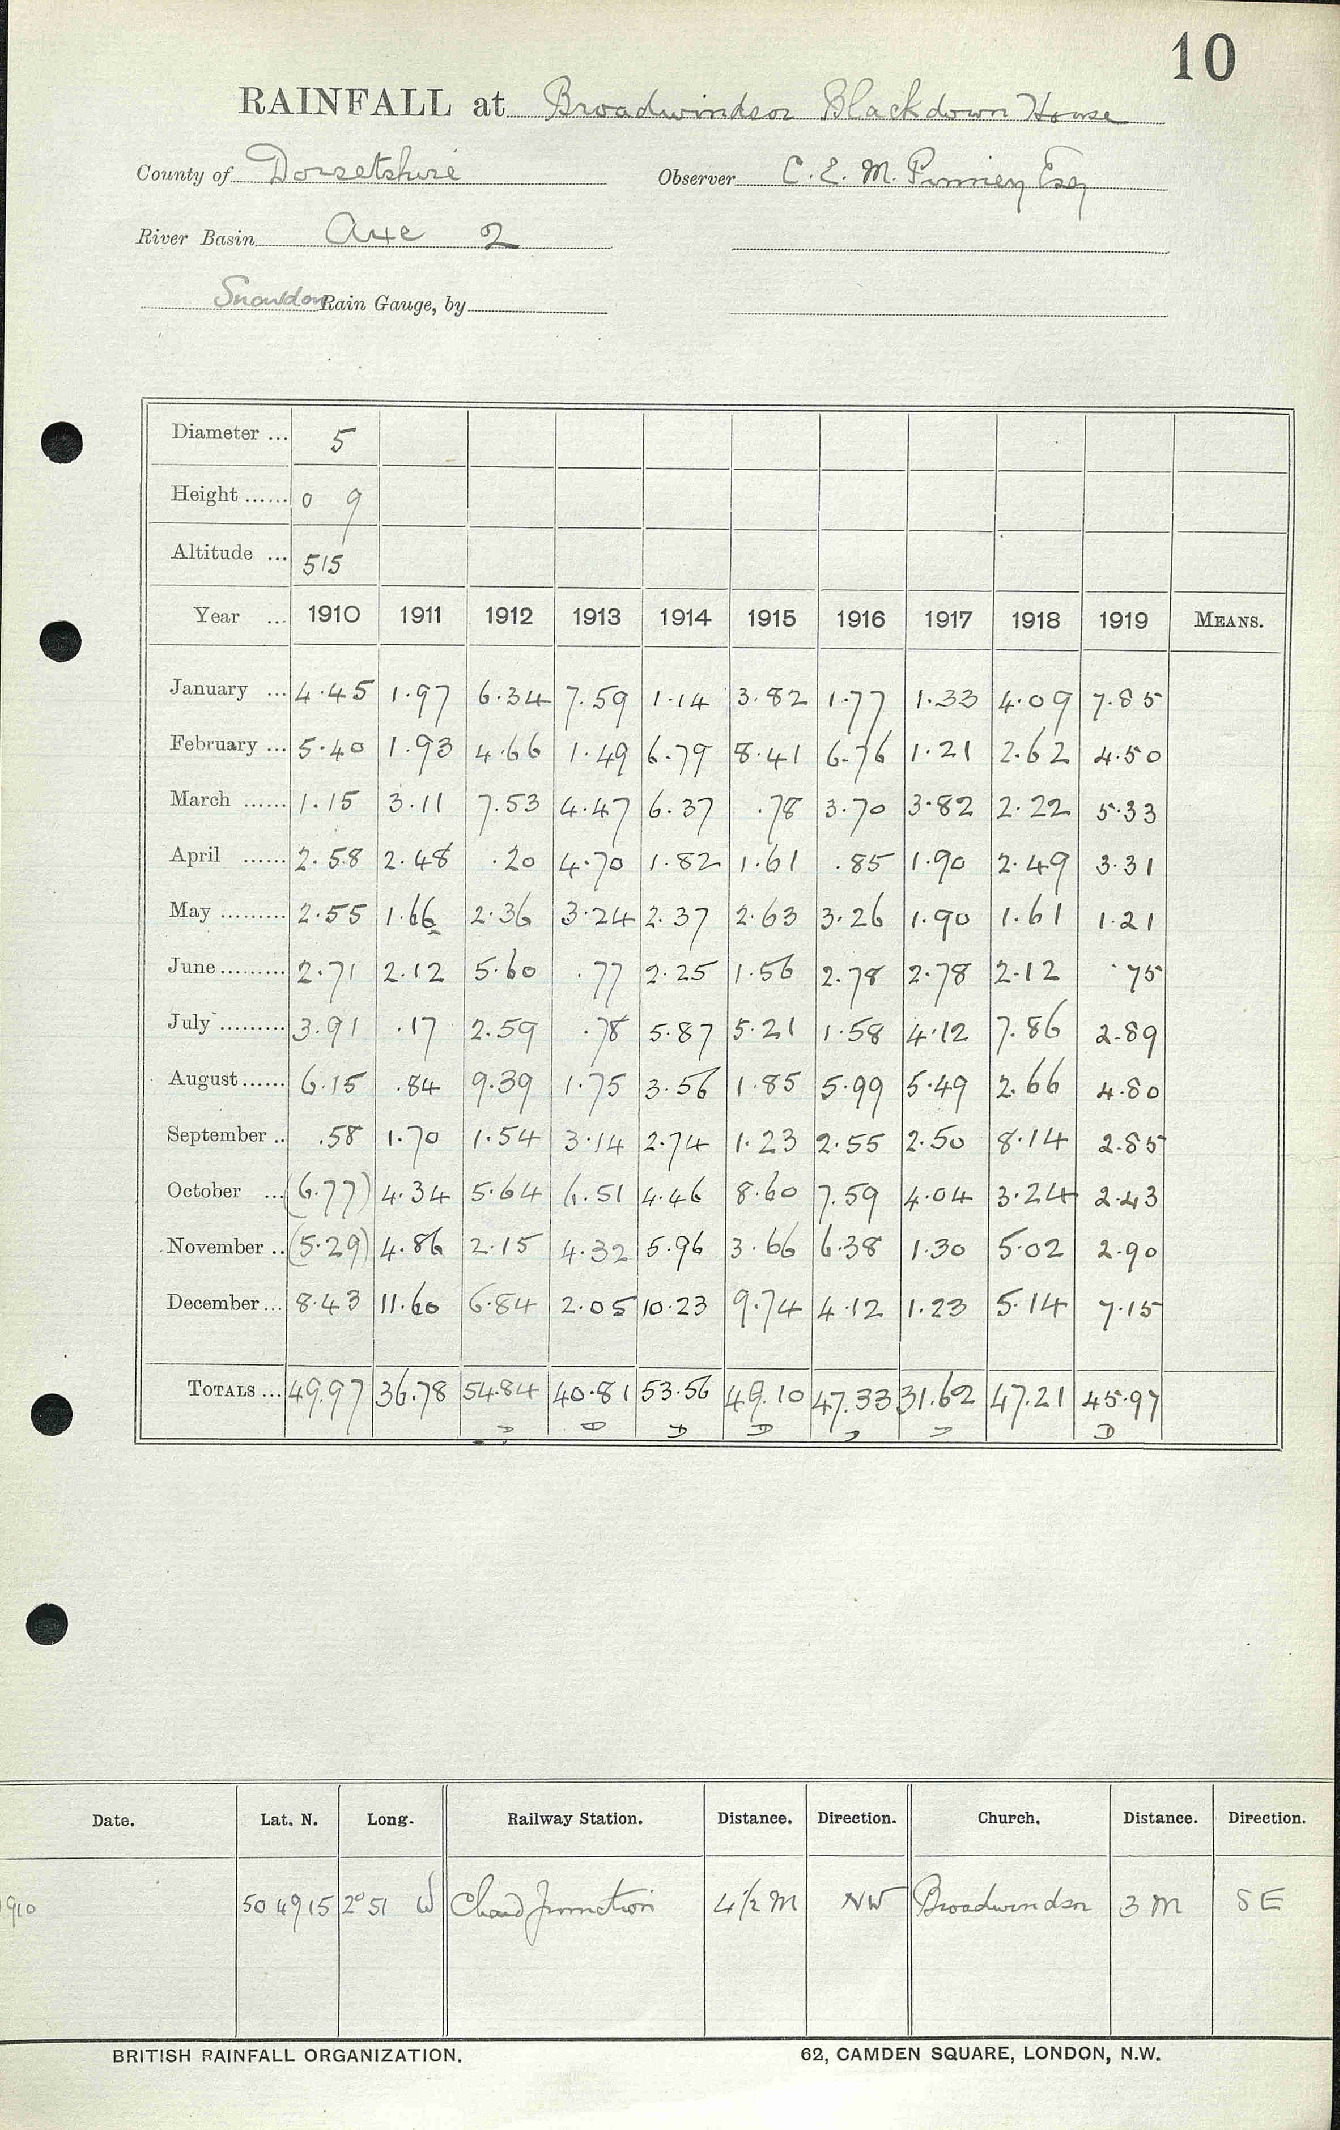 10
RAINFALL at Broadwindsor Blackdown House
County of Dorsetshire Observer C. E. M. Pinney Esq
River Basin Axe 2
Snowdon Rain Gauge, by
Diameter ... 5
Height ...... 0 9
Altitude ... 515
Year ... 1910 1911 1912 1913 1914 1915 1916 1917 1918 1919 MEANS.
January ... 4.45 1.97 6.34 7.59 1.14 3.82 1.77 1.33 4.09 7.85
February ... 5.40 1.93 4.66 1.49 6.79 8.41 6.76 1.21 2.62 4.50
March ...... 1.15 3.11 7.53 4.47 6.37 .78 3.70 3.82 2.22 5.33
April ...... 2.58 2.48 .20 4.70 1.82 1.61 .85 1.90 2.49 3.31
May ......... 2.55 1.66 2.36 3.24 2.37 2.63 3.26 1.90 1.61 1.21
June ......... 2.71 2.12 5.60 .77 2.25 1.56 2.78 2.78 2.12 .75
July ......... 3.91 .17 2.59 .78 5.87 5.21 1.58 4.12 7.86 2.89
August ...... 6.15 .84 9.39 1.75 3.56 1.85 5.99 5.49 2.66 4.80
September .. .58 1.70 1.54 3.14 2.74 1.23 2.55 2.50 8.14 2.85
October ... (6.77) 4.34 5.64 6.51 4.46 8.60 7.59 4.04 3.24 2.43
November .. (5.29) 4.86 2.15 4.32 5.96 3.66 6.38 1.30 5.02 2.90
December ... 8.43 11.60 6.84 2.05 10.23 9.74 4.12 1.23 5.14 7.15
TOTALS ... 49.97 36.78 54.84 40.81 53.56 49.10 47.33 31.62 47.21 45.97
D D D D D D D
Date. Lat. N. Long. Railway Station. Distance. Direction. Church. Distance. Direction.
910 50 49 15 2° 51 W Chard Junction 4½ M NW Broadwindsor 3 M SE
BRITISH RAINFALL ORGANIZATION. 62, CAMDEN SQUARE, LONDON, N.W.